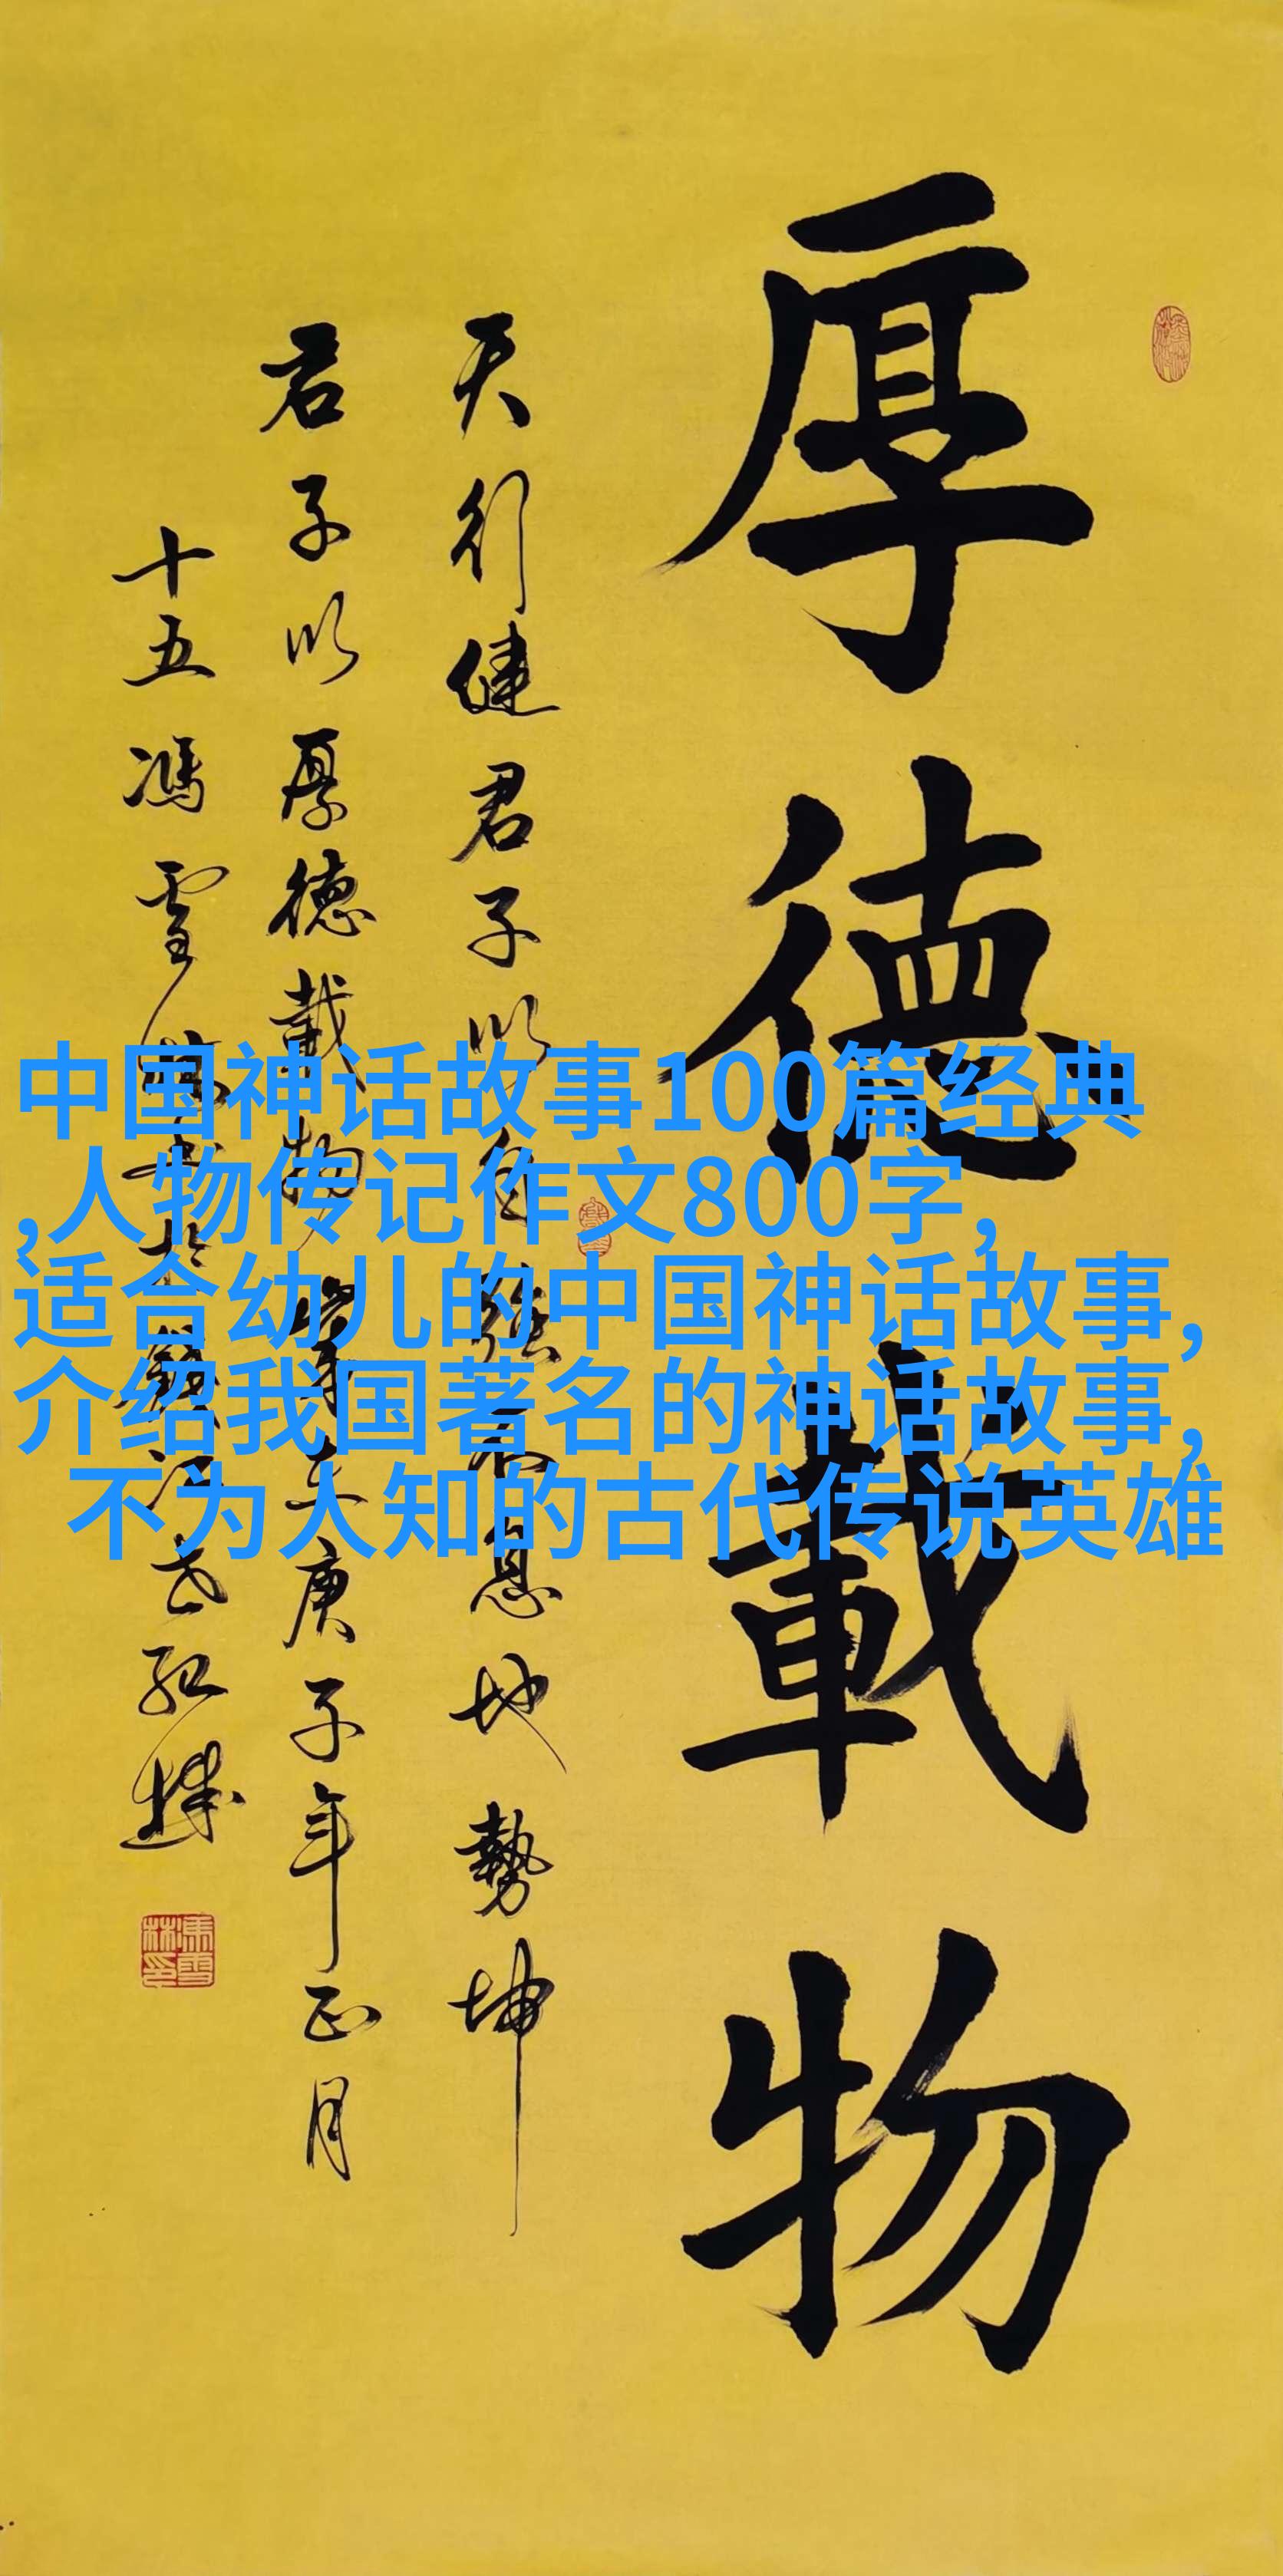 厚德載物
天行健君子以自強不息地勢坤
君子以厚德載物 歲在庚子年正月
十五馮雪林書於錢江
馮雪林印
中国神话故事100篇经典
,人物传记作文800字,
适合幼儿的中国神话故事,
介绍我国著名的神话故事,
不为人知的古代传说英雄